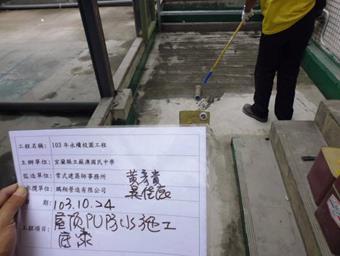 工程名稱: 103年永續校園工程
主辦單位: 宜蘭縣立蘇澳國民中學
監造單位: 常式建築師事務所
承攬單位: 鵬翔營造有限公司
期: 103.10.24
工程項目: 屋頂PU防水施工
底漆